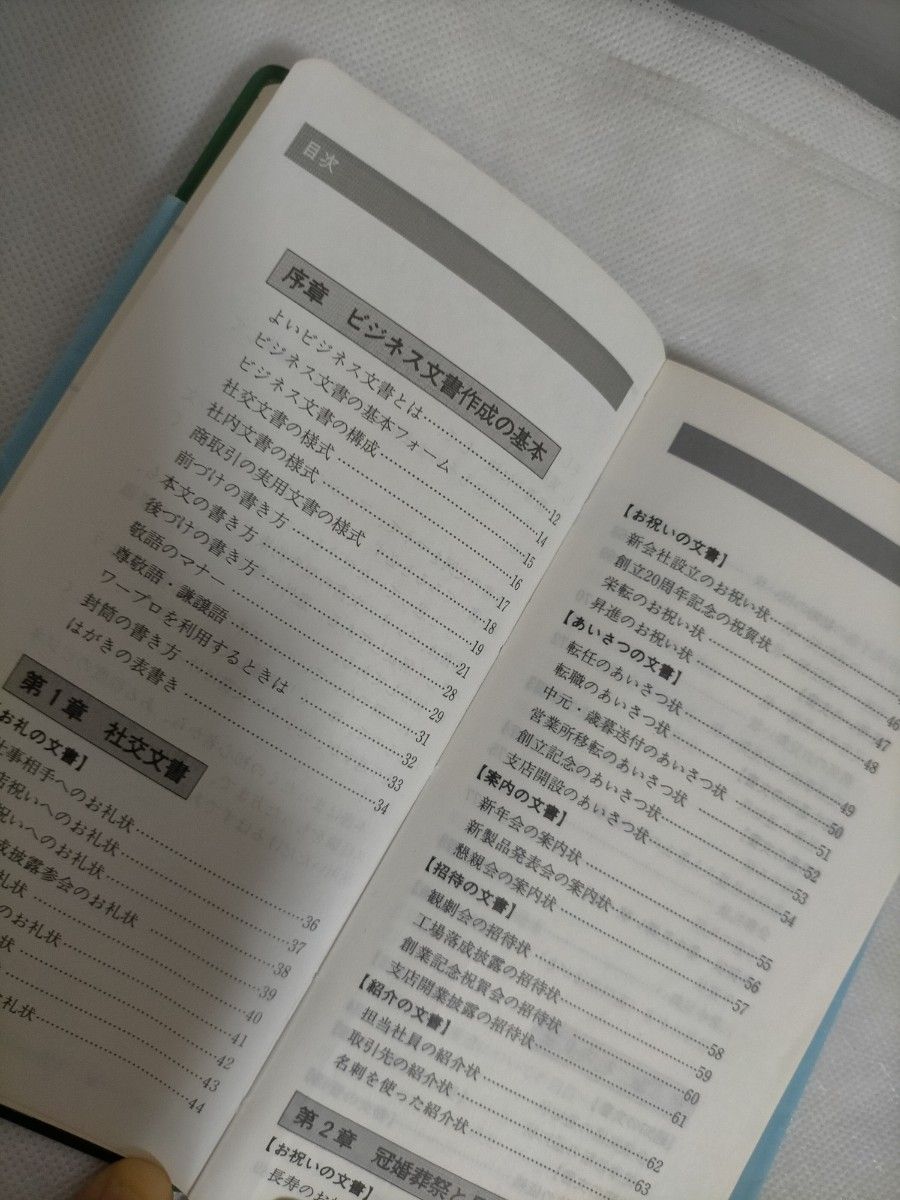 目次
序章 ビジネス文書作成の基本
よいビジネス文書とは……12
ビジネス文書の基本フォーム……14
ビジネス文書の構成……15
社交文書の様式……16
社内文書の様式……17
商取引の実用文書の様式……18
前づけの書き方……19
本文の書き方……21
後づけの書き方……28
敬語のマナー……29
尊敬語・謙譲語……31
ワープロを利用するときは……32
封筒の書き方……33
はがきの表書き……34
第1章 社交文書
お礼の文書】
仕事相手へのお礼状……36
店祝いへのお礼状……37
祝いへのお礼状……38
成披露参会のお礼状……39
礼状……40
のお礼状……41
状……42
……43
礼状……44
【お祝いの文書】
新会社設立のお祝い状……
創立20周年記念の祝賀状……46
栄転のお祝い状……47
昇進のお祝い状……48
【あいさつの文書】
転任のあいさつ状……49
転職のあいさつ状……50
中元・歳暮送付のあいさつ状……51
営業所移転のあいさつ状……52
創立記念のあいさつ状……53
支店開設のあいさつ状……54
【案内の文書】
新年会の案内状……55
新製品発表会の案内状……56
懇親会の案内状……57
【招待の文書】
観劇会の招待状……58
工場落成披露の招待状……59
創業記念祝賀会の招待状……60
支店開業披露の招待状……61
【紹介の文書】
担当社員の紹介状……62
取引先の紹介状……63
名刺を使った紹介状……
第2章 冠婚葬祭と
【お祝いの文書】
長寿のお